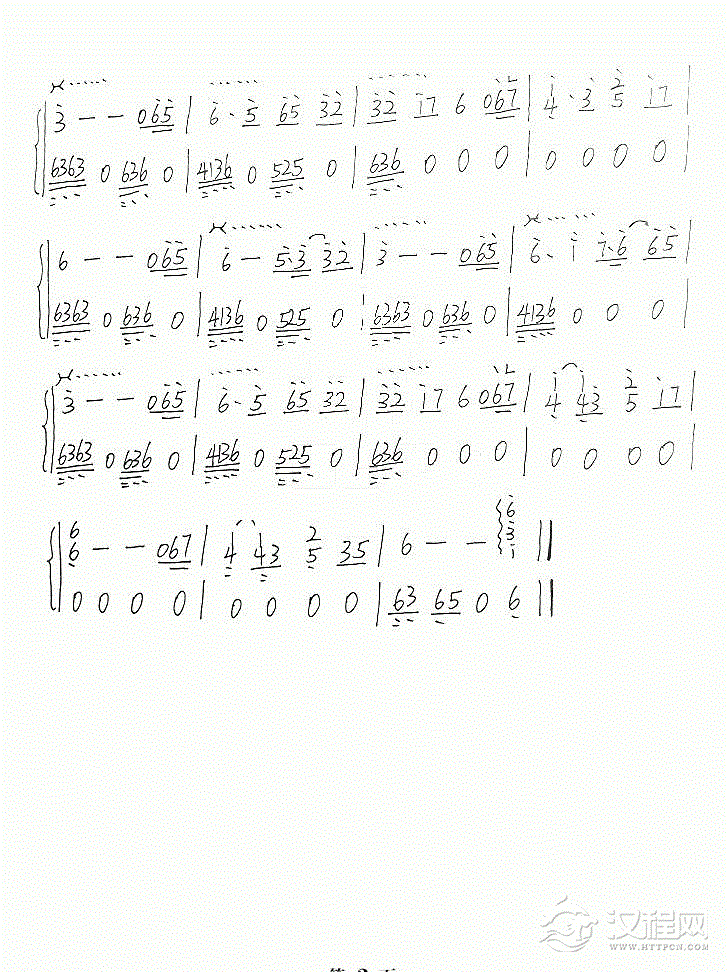 3 - - 065 | 6 · 5 65 32 | 32 17 6 067 | 4 · 3 2 5 17 |
6363 0 636 0 | 4136 0 525 0 | 636 0 0 0 | 0 0 0 0 |
6 - - 065 | 6 - 5·3 32 | 3 - - 065 | 6 · 1 1·6 65 |
6363 0 636 0 | 4136 0 525 0 | 6363 0 636 0 | 4136 0 0 0 |
3 - - 065 | 6 · 5 65 32 | 32 17 6 067 | 4 43 2 5 17 |
6363 0 636 0 | 4136 0 525 0 | 636 0 0 0 | 0 0 0 0 |
6 6 - - 067 | 4 43 2 5 35 | 6 - - 6 3 1 ||
0 0 0 0 | 0 0 0 0 | 63 65 0 6 ||
汉程网
WWW.HTTPCN.COM